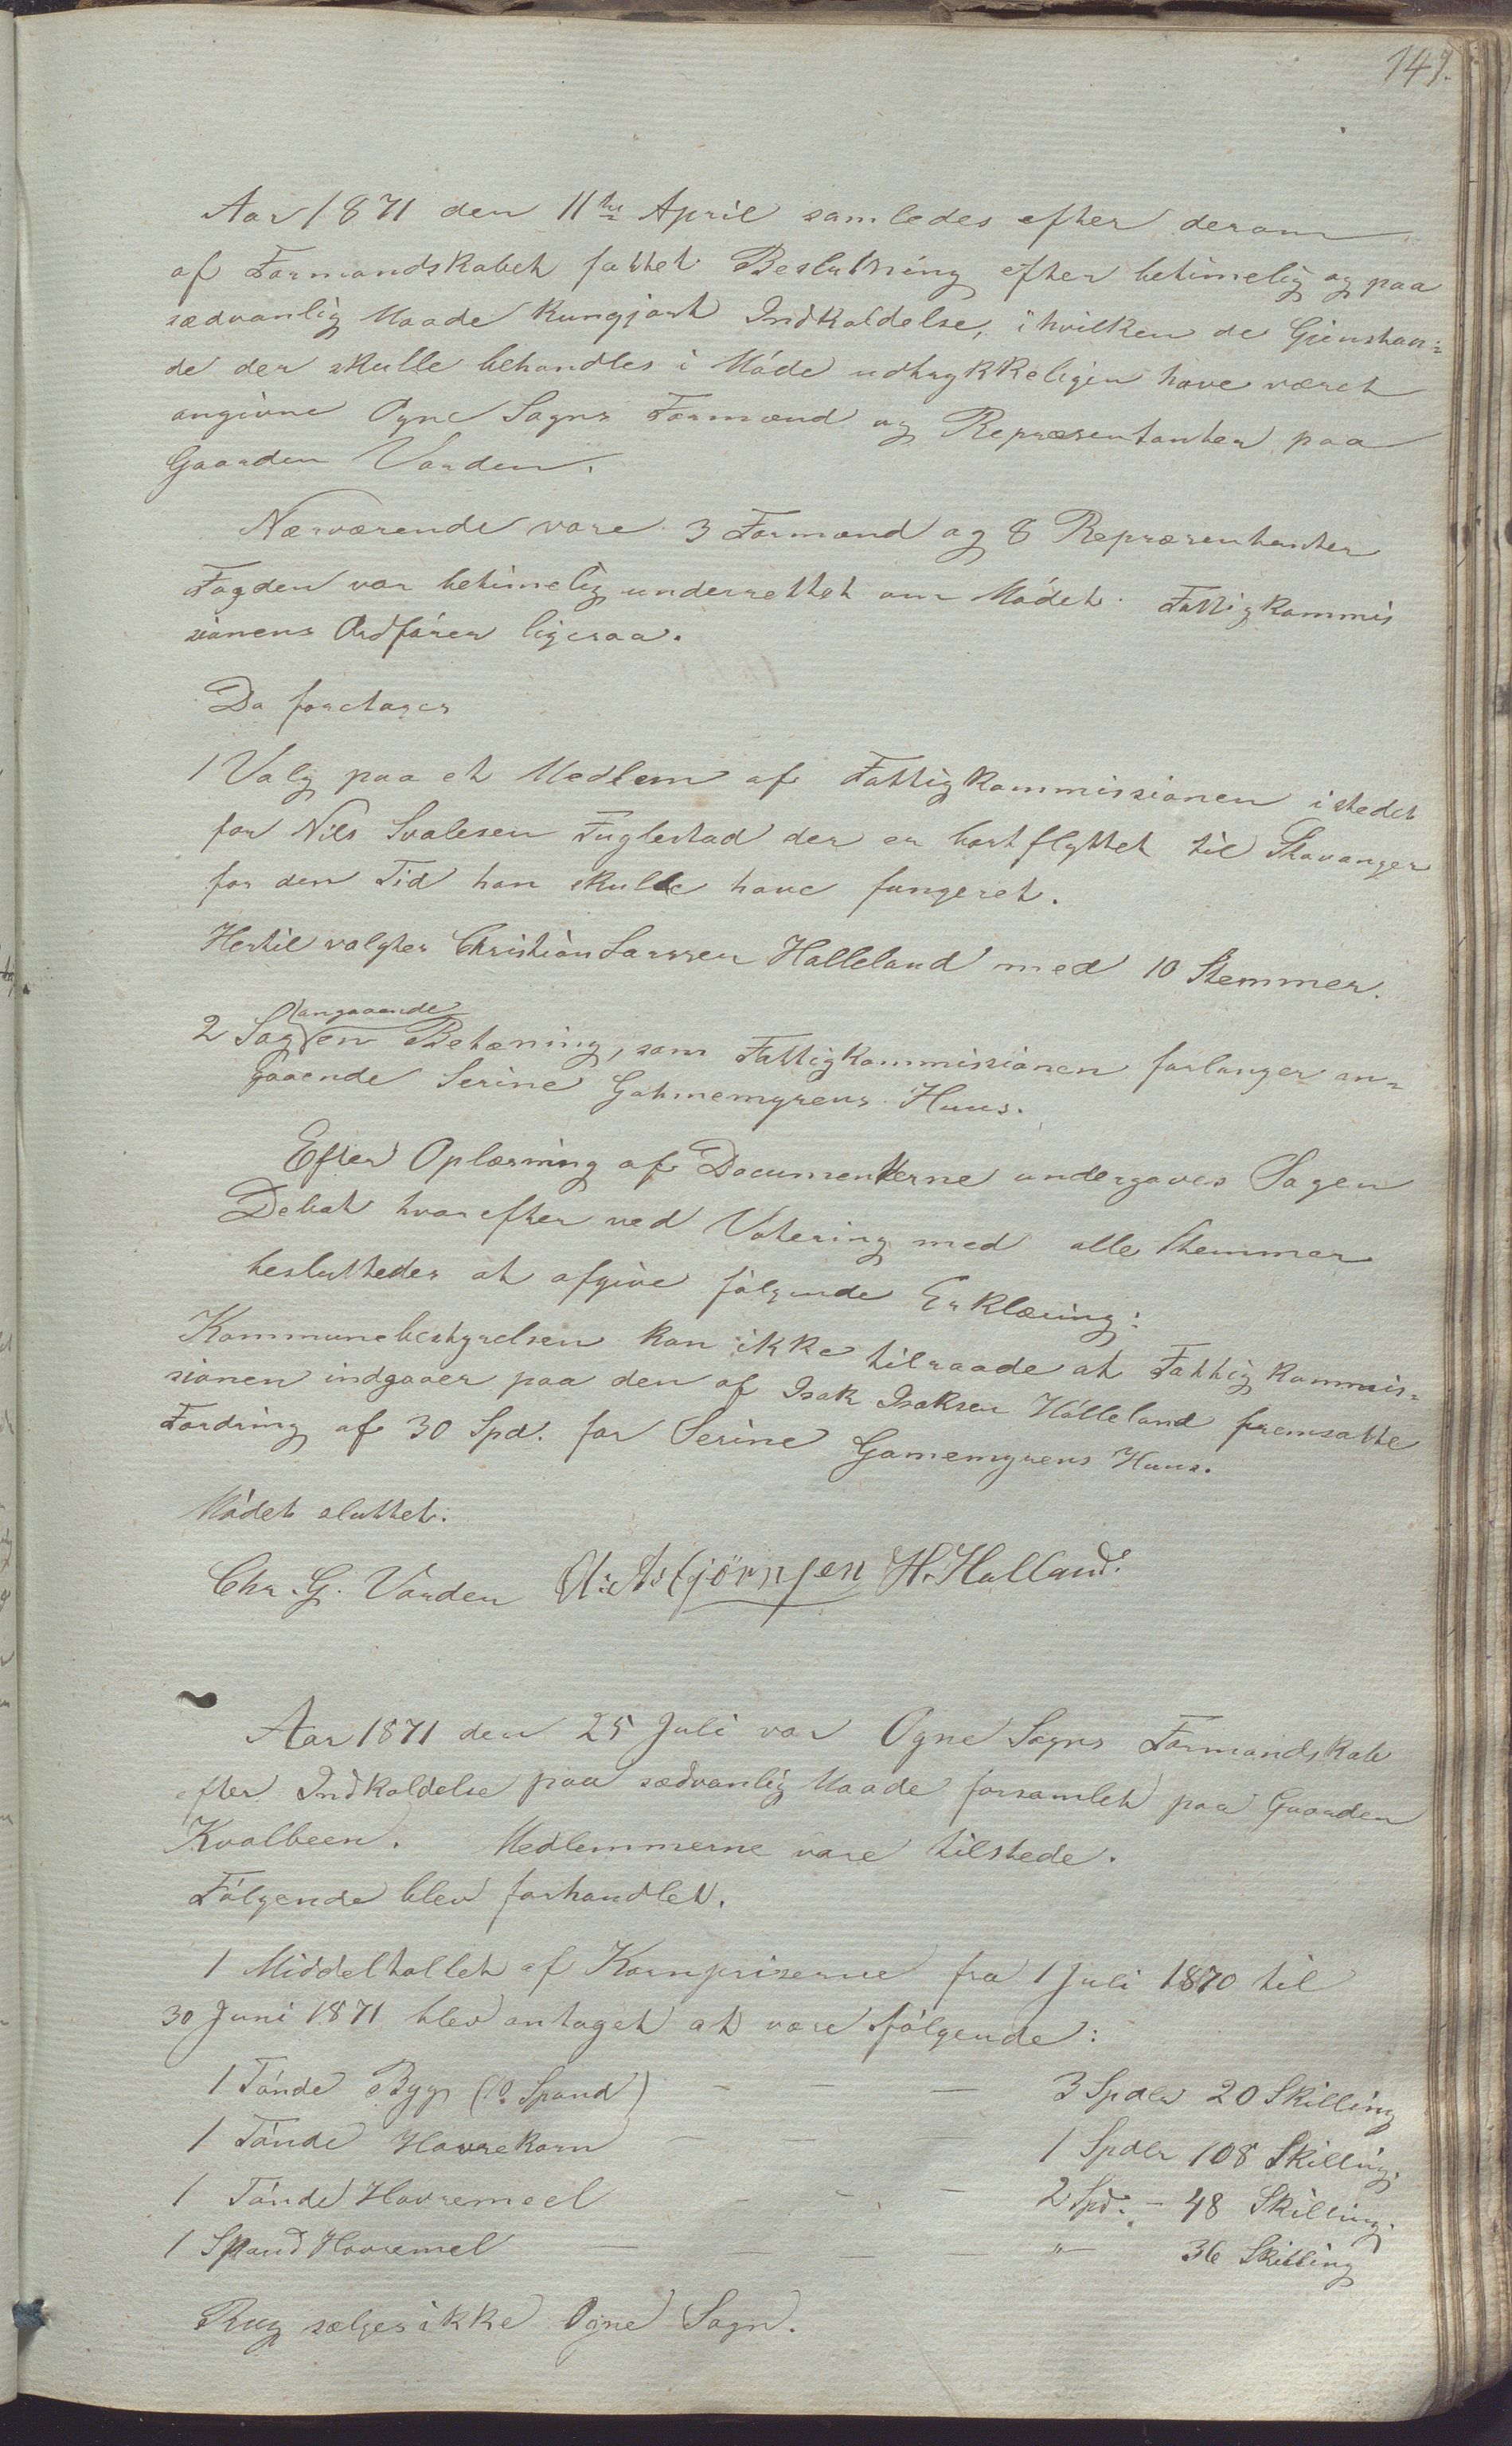 147.
Aar 1871 den 11te April samledes efter derom
af Formandskabet fattet Beslutning efter betimelig og paa
sædvanlig Maade kungjort Indkaldelse, i hvilken de Gjenstan=
de der skulle behandles i Møde udtrykkeligen have været
angivne Ogne Sogns Formænd og Repræsentanter paa
Gaarden Varden.
Nærværende vare 3 Formænd og 8 Repræsentanter
Fogden var betimelig underrettet om Mødet. Fattigkommis
sionens Ordfører ligesaa.
Da foretoges
1 Valg paa et Medlem af Fattigkommissionen istedet
for Nils Svalesen Fuglestad der er bortflyttet til Stavanger
for den Tid han skulde have fungeret.
Hertil valgtes Christian Larssen Halleland med 10 Stemmer.
2 Sag angaaende en Betæning, som Fattigkommissionen forlanger an=
gaaende Serine Gahmemyrens Huus.
Efter Oplæsning af Documenterne undergaves Sagen
Debat hvorefter ved Votering med alle Stemmer
besluttedes at afgive følgende Erklæring:
Kommunebestyrelsen kan ikke tilraade at Fattigkommis=
sionen indgaaer paa den af Isak Isaksen Hølleland fremsatte
Fordring af 30 Spd. for Serine Gamemyrens Huus.
Mødet sluttet.
Chr. G. Varden A. Asbjörnsen H. Halland.
Aar 1871 den 25 Juli var Ogne Sogns Formandskab
efter Indkaldelse paa sædvanlig Maade forsamlet paa Gaarden
Kvalbeen. Medlemmerne vare tilstede.
Følgende blev forhandlet.
1 Middeltallet af Kornpriserne fra 1 Juli 1870 til
30 Juni 1871 blev antaget at være følgende:
1 Tønde Byg (10 Spand) — — — 3 Spdlr 20 Skilling
1 Tønde Havrekorn — — — 1 Spdlr 108 Skilling.
1 Tønde Havremeel — — — 2 Spd. – 48 Skilling.
1 Spand Havremel — — — — "— 36 Skilling
Rug sælges ikke Ogne Sogn.